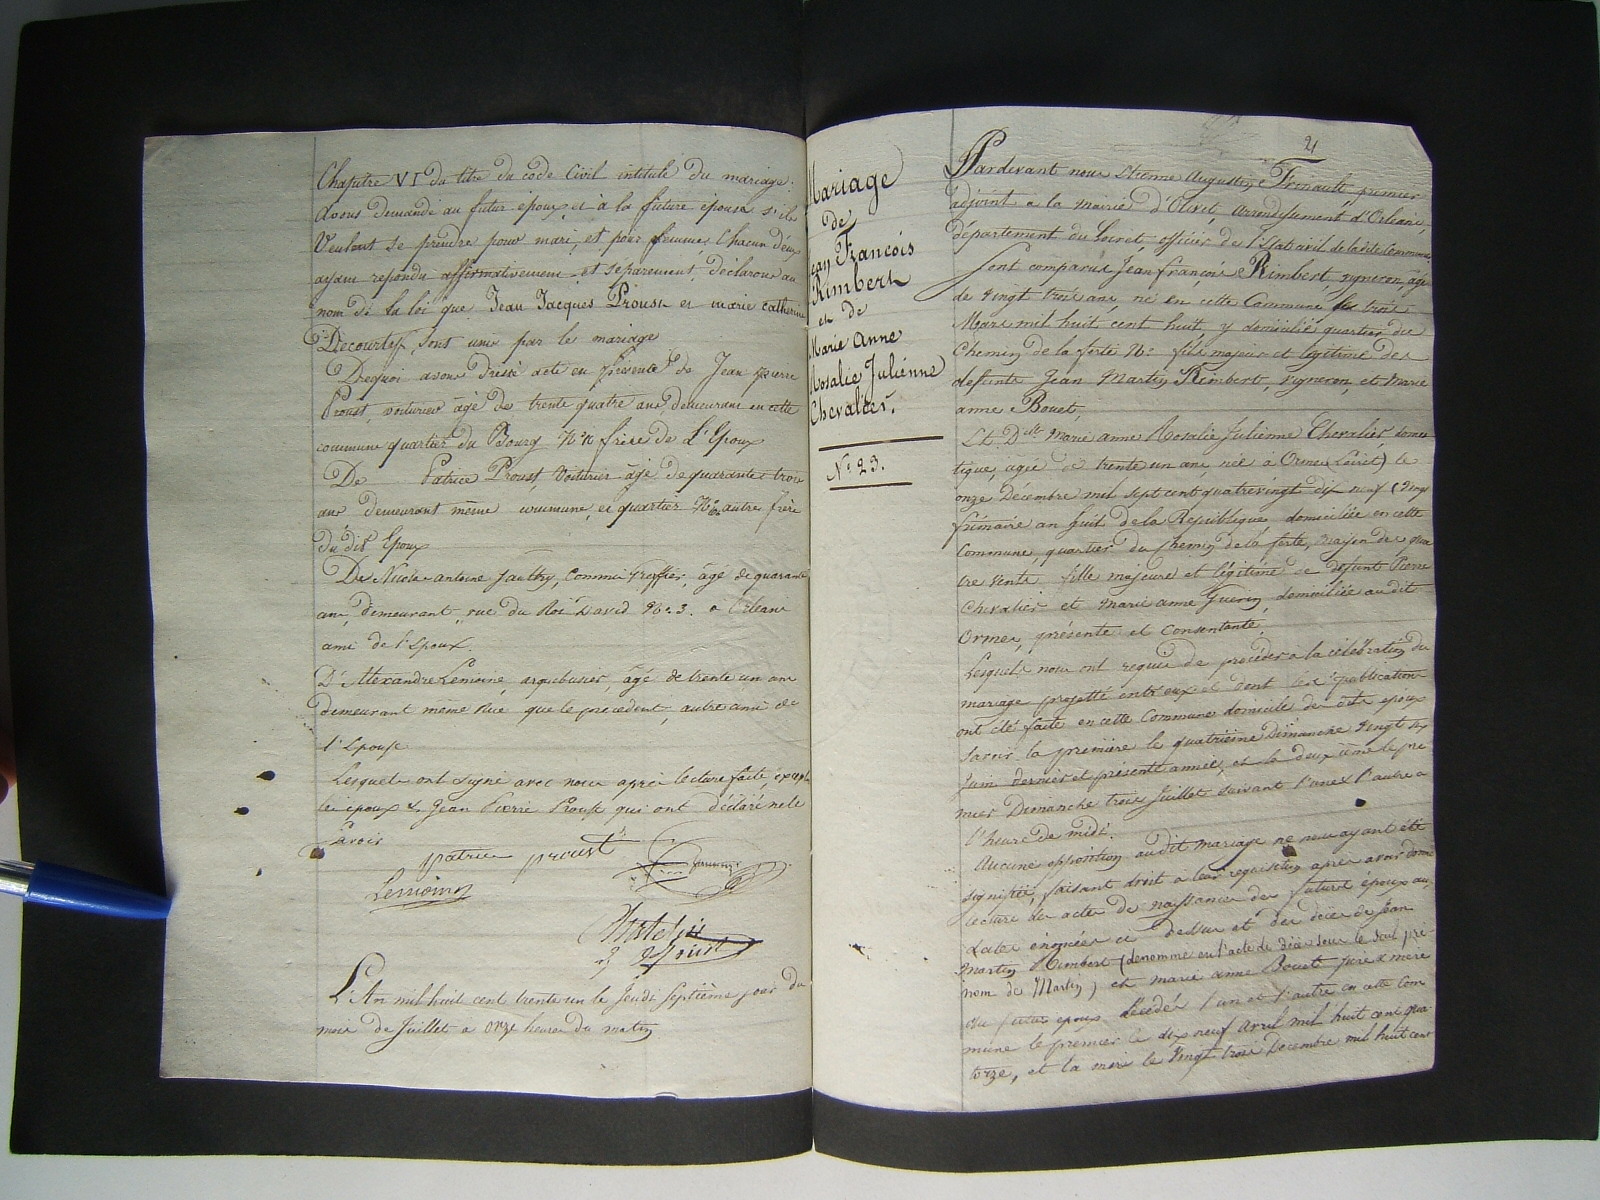 Chapitre VI du titre du code Civil intitulé Du mariage:
Avons demandé au futur epoux et à la future epouse s'ils
Veulent se prendre pour mari et pour femme, Chacun d'eux
ayant repondu affirmativement et séparement, déclarons au
nom de la loi que Jean Jacques Proust et marie catherine
Decourtes, sont unis par le mariage
Dequoi avons dressé acte en présence de Jean pierre
Proust, voiturier agé de trente quatre ans, demeurant en cette
commune quartier du Bourg frère de L'Epoux
De Patrice Proust, Voiturier âgé de quarante trois
ans demeurant même commune, et quartier autre frère
du dit Epoux
De antoine Commis Greffier, âgé de quarante
ans, demeurant, rue du Roi David No 3. a Orleans
ami de l'Epoux.
D'Alexandre Lemoine, arquebusier, âgé de trente un ans
demeurant même Rue que le precedent, autre ami de
l'Epouse
Lesquels ont signé avec nous après lecture faite, excepté
les epoux & Jean Pierre Proust qui ont déclaré ne le
savoir
patrice proust
Lemoine
L'An mil huit cent trente un le Jeudi Septième jour du
mois de Juillet a onze heures du matin
Mariage
de
Jean François
Rimbert
et de
Marie Anne
Rosalie Julienne
Chevalier.
No 23.
21
Pardevant nous Etienne Augustin Trinault premier
adjoint a la mairie d'Olivet, arrondissement d'Orleans,
département du Loiret, officier de l'Etat civil de la dite Commune
Sont comparus Jean françois Rimbert, vigneron, agé
de vingt trois ans, né en cette Commune le trois
Mars mil huit cent huit, y domicilié quartier du
Chemin de la ferté No fils majeur et légitime des
defunts Jean Martin Rimbert, vigneron, et Marie
anne Bouet,
Et Dlle Marie anne Rosalie Julienne Chevalier domes
tique, agée de trente un ans née à Ormes (Loiret) le
onze Décembre mil sept cent quatrevingt dix neuf (vingt
frimaire an huit de la République, domiciliée en cette
Commune, quartier du Chemin de la ferté, maison des qua
tre vents fille majeure et légitime de défunt Pierre
Chevalier et Marie anne Guerin, domiciliée audit
Ormes, présente et Consentante.
Lesquels nous ont requis de procéder a la célébration du
mariage projetté entr'eux et dont les publications
ont été faites en cette Commune domicile des dits epoux
Savoir la premiere le quatrieme Dimanche vingt six
Juin dernier et présente année, et la deuxième le pre
mier Dimanche trois Juillet suivant l'une & l'autre a
l'heure de midi.
Aucune opposition au dit mariage ne nous ayant été
signifiée, faisant droit a leur requisition après avoir donné
lecture des actes de naissances des futurs époux aux
dates énoncées ci dessus et des décès de Jean
Martin Rimbert (denommé en l'acte de décès sous le seul pré
nom de Martin) et marie anne Bouet père & mère
du futur epoux décédés l'un et l'autre en cette Com
mune le premier le dix neuf Avril mil huit cent qua
torze, et la mère le vingt trois Decembre mil huit cent